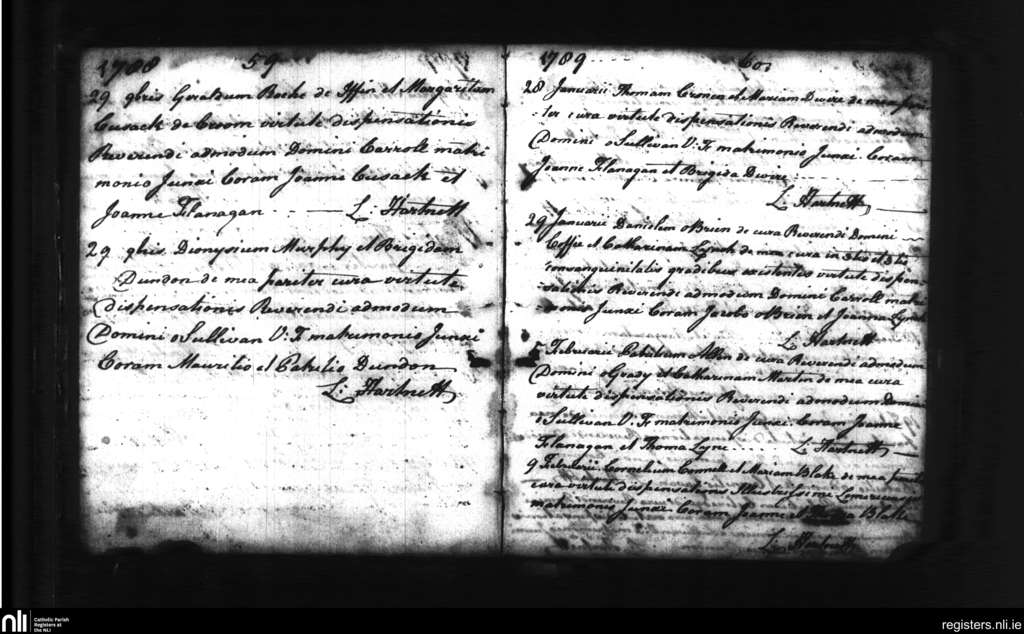 1788 59
29 9bris Geraldum Roche de Iffin et Margaritam
Cusack de Croom virtute dispensationis
Reverendi admodum Domini Carroll matri
monio Junxi Coram Joanne Cusack et
Joanne Flanagan L: Hartnett
29 9bris Dionysium Murphy et Brigidam
Dundon de mea pariter cura virtute
dispensationis Reverendi admodum
Domini o Sullivan V: F: matrimonio Junxi
Coram Mauritio et Patritio Dundon
L: Hartnett
1789 60
28 Januarii Thomam Cronea et Mariam Dwire de mea pari
ter cura virtute dispensationis Reverendi admodum
Domini o Sullevan V: F: matrimonio Junxi. Coram
Joanne Flanagan et Brigida Dwire
L: Hartnett
29 Januarii Danielem oBrien de cura Reverendi Domini
Coffie et Catharinam Lynch de mea cura in 3tio et 3tio
consanguinitatis gradibus existentes virtute dispen
sationis Reverendi admodum Domini Carroll matri
monio Junxi Coram Jacobo oBrien et Joanna Lynch
L: Hartnett
5 Februarii Patritium Allen de cura Reverendi admodum
Domini oGrady et Catharinam Martin de mea cura
virtute dispensationis Reverendi admodum Domini
o Sullevan V: F: matrimonio Junxi. Coram Joanne
Flanagan et Thoma Lyne L: Hartnett
9 Februarii Cornelium Connell et Mariam Blake de mea
cura virtute dispensationis Illustrissimi
matrimonio Junxi Coram Joanne et Blake
L: Hartnett
nli
Catholic Parish
Registers at
the NLI
registers.nli.ie